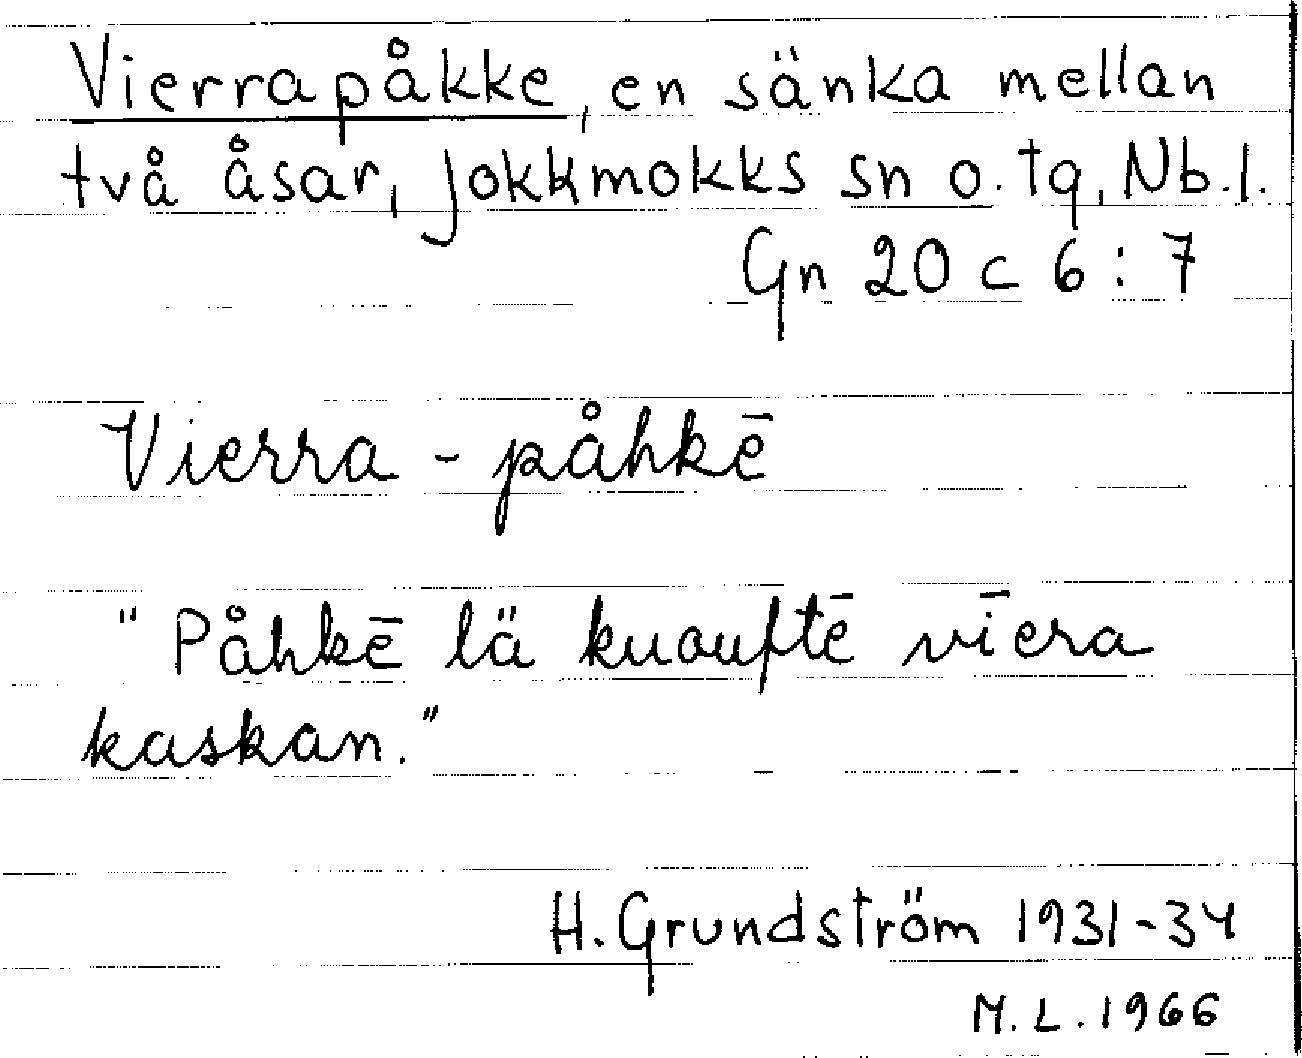 Vierrapåkke, en sänka mellan
två åsar, Jokkmokks sn o. tg, Nb.l.
Gn 20 c 6 : 7
Vierra - påhkē
"Påhkē lä kuouftē vīera
kaskan."
H. Grundström 1931-34
M. L. 1966